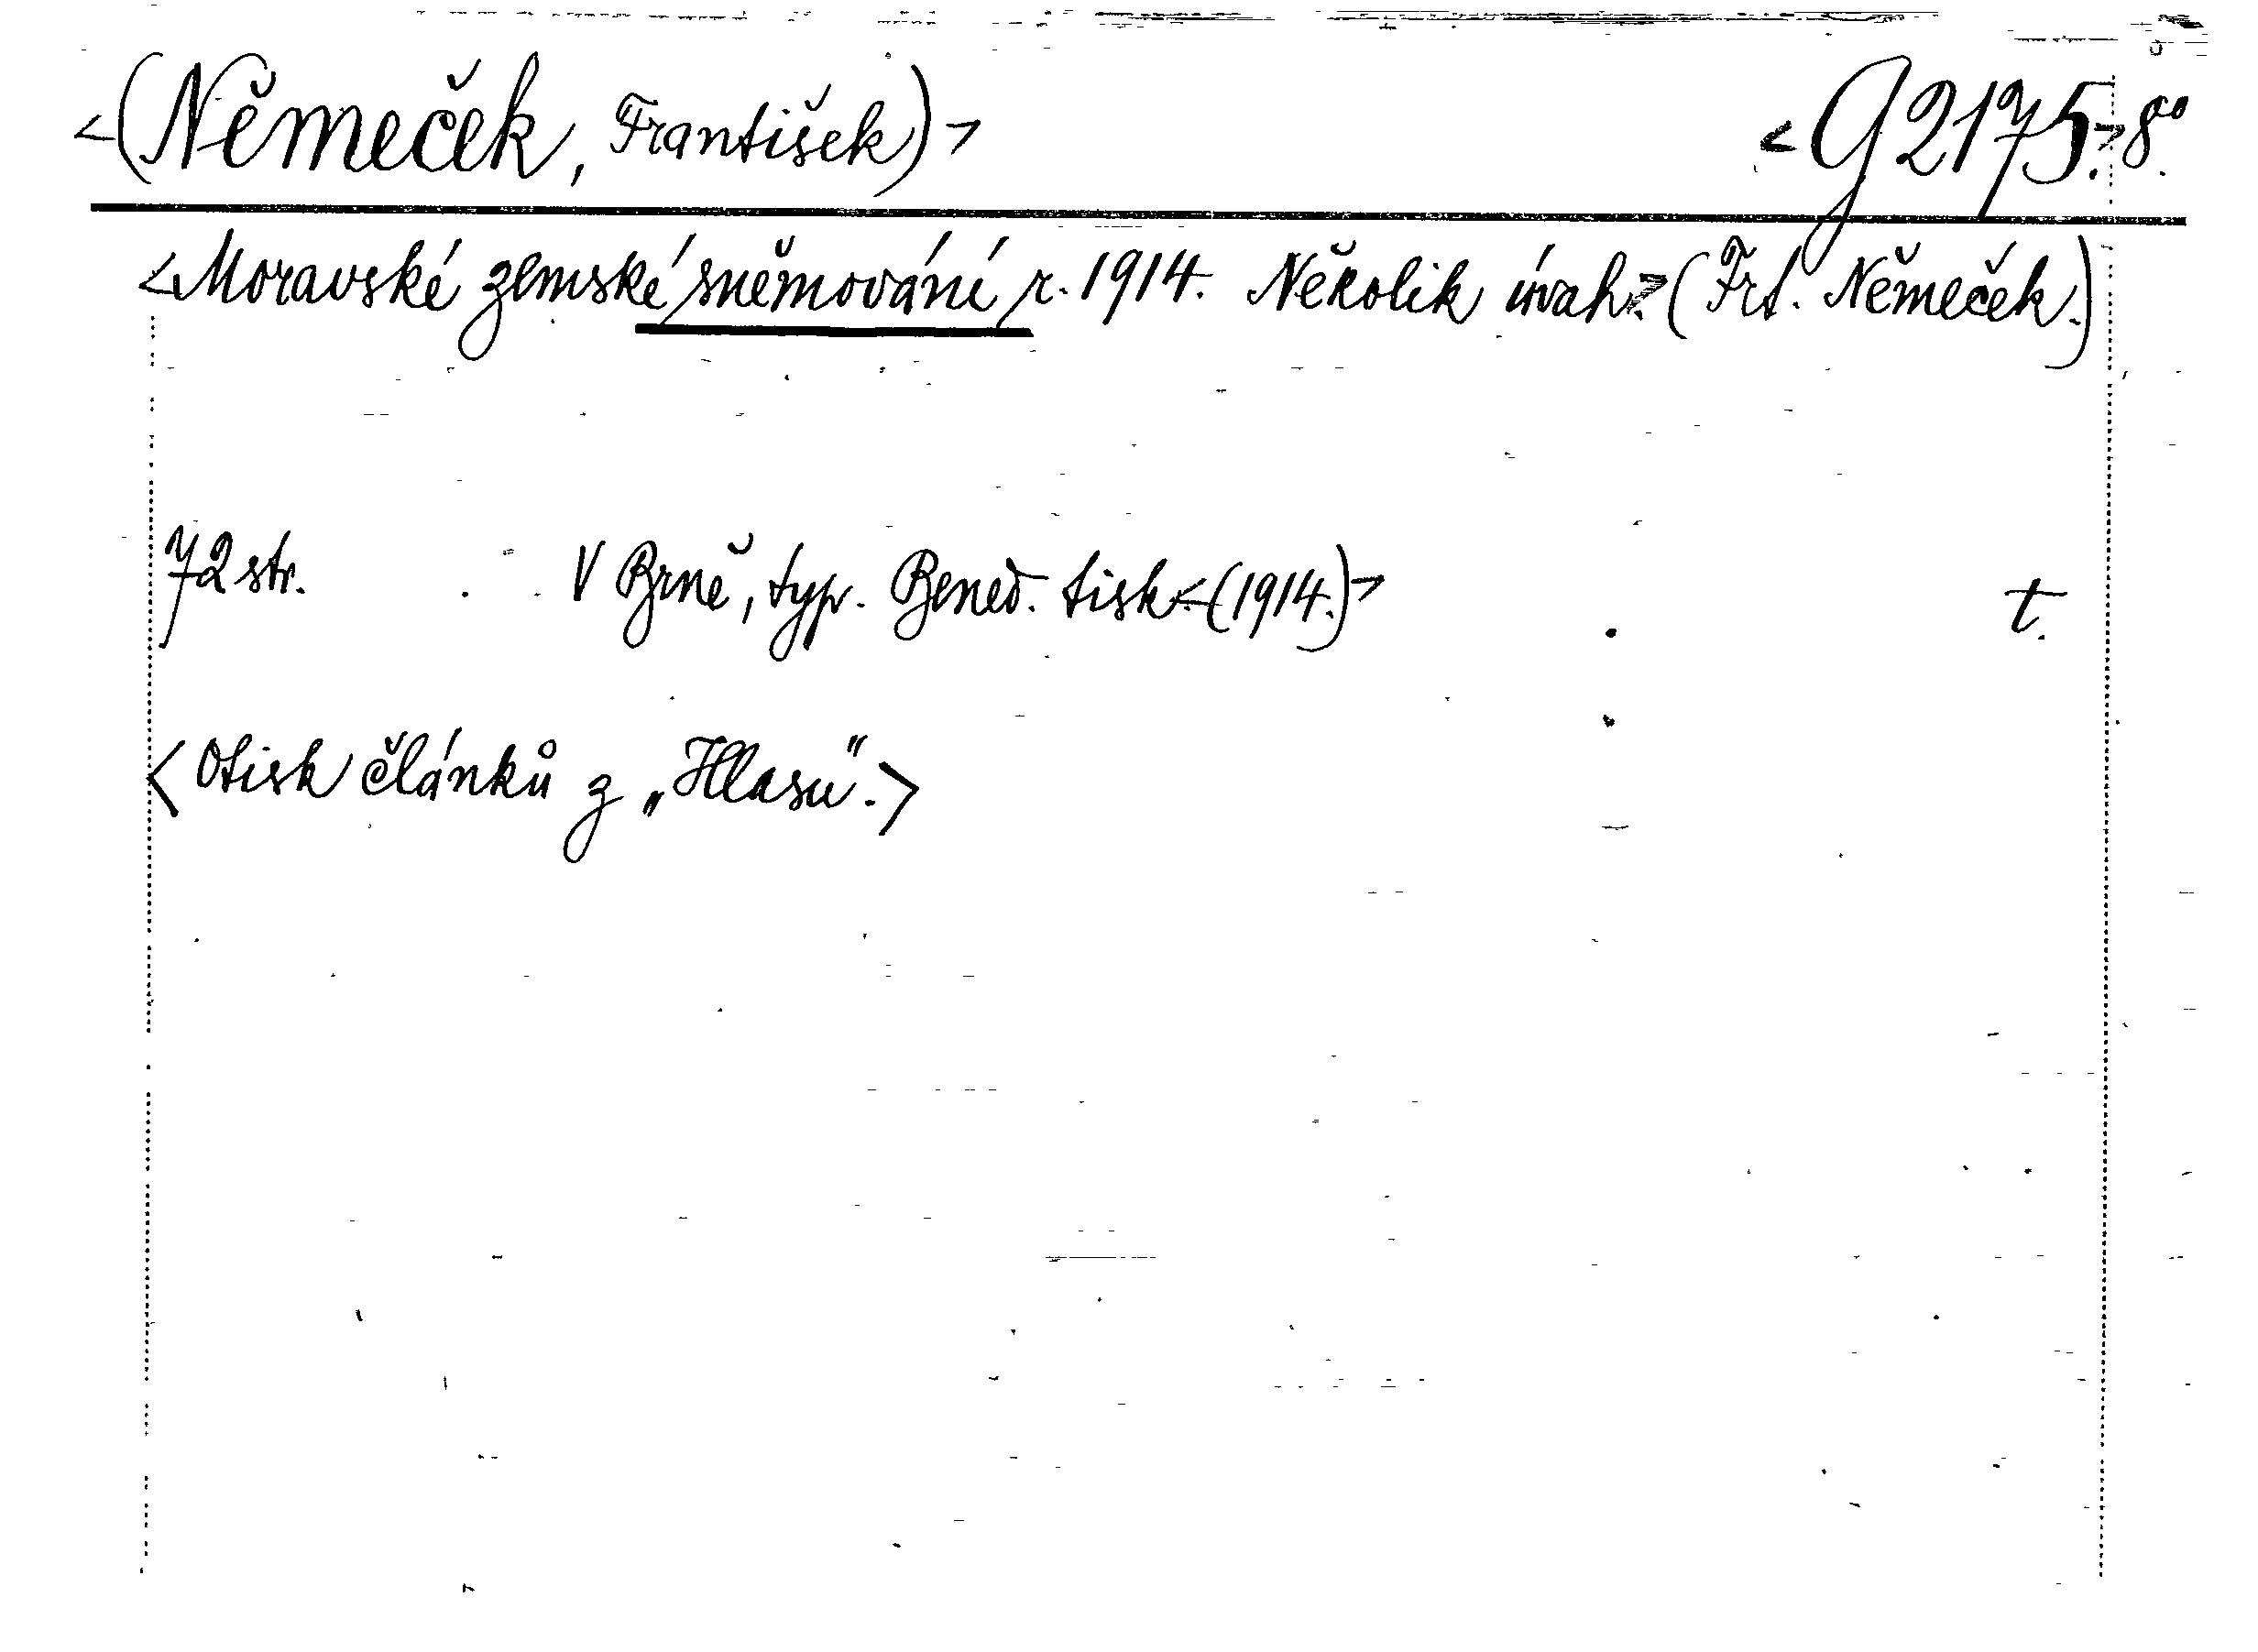 <(Němeček, František)> <G 2175.> 8°.
<Moravské zemské sněmování r. 1914. Několik úvah.> (Frt. Němeček.)
72 str. V Brně, typ. Bened. tisk. <(1914.)> t.
<Otisk článků z „Hlasu“.>